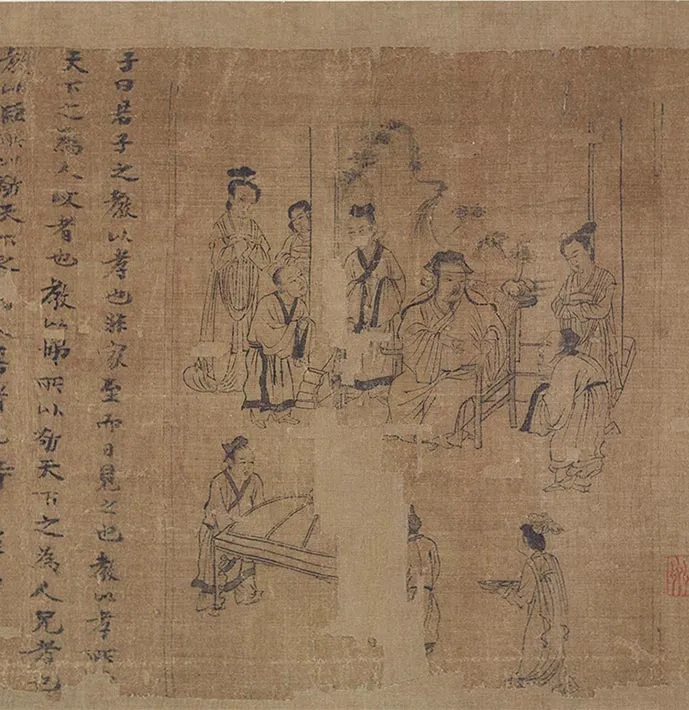 子曰君子之教以孝也非家至而日見之也教以孝所
天下之為人父者也教以悌所以敬天下之為人兄者也
教以臣所以敬天下之人君者也詩